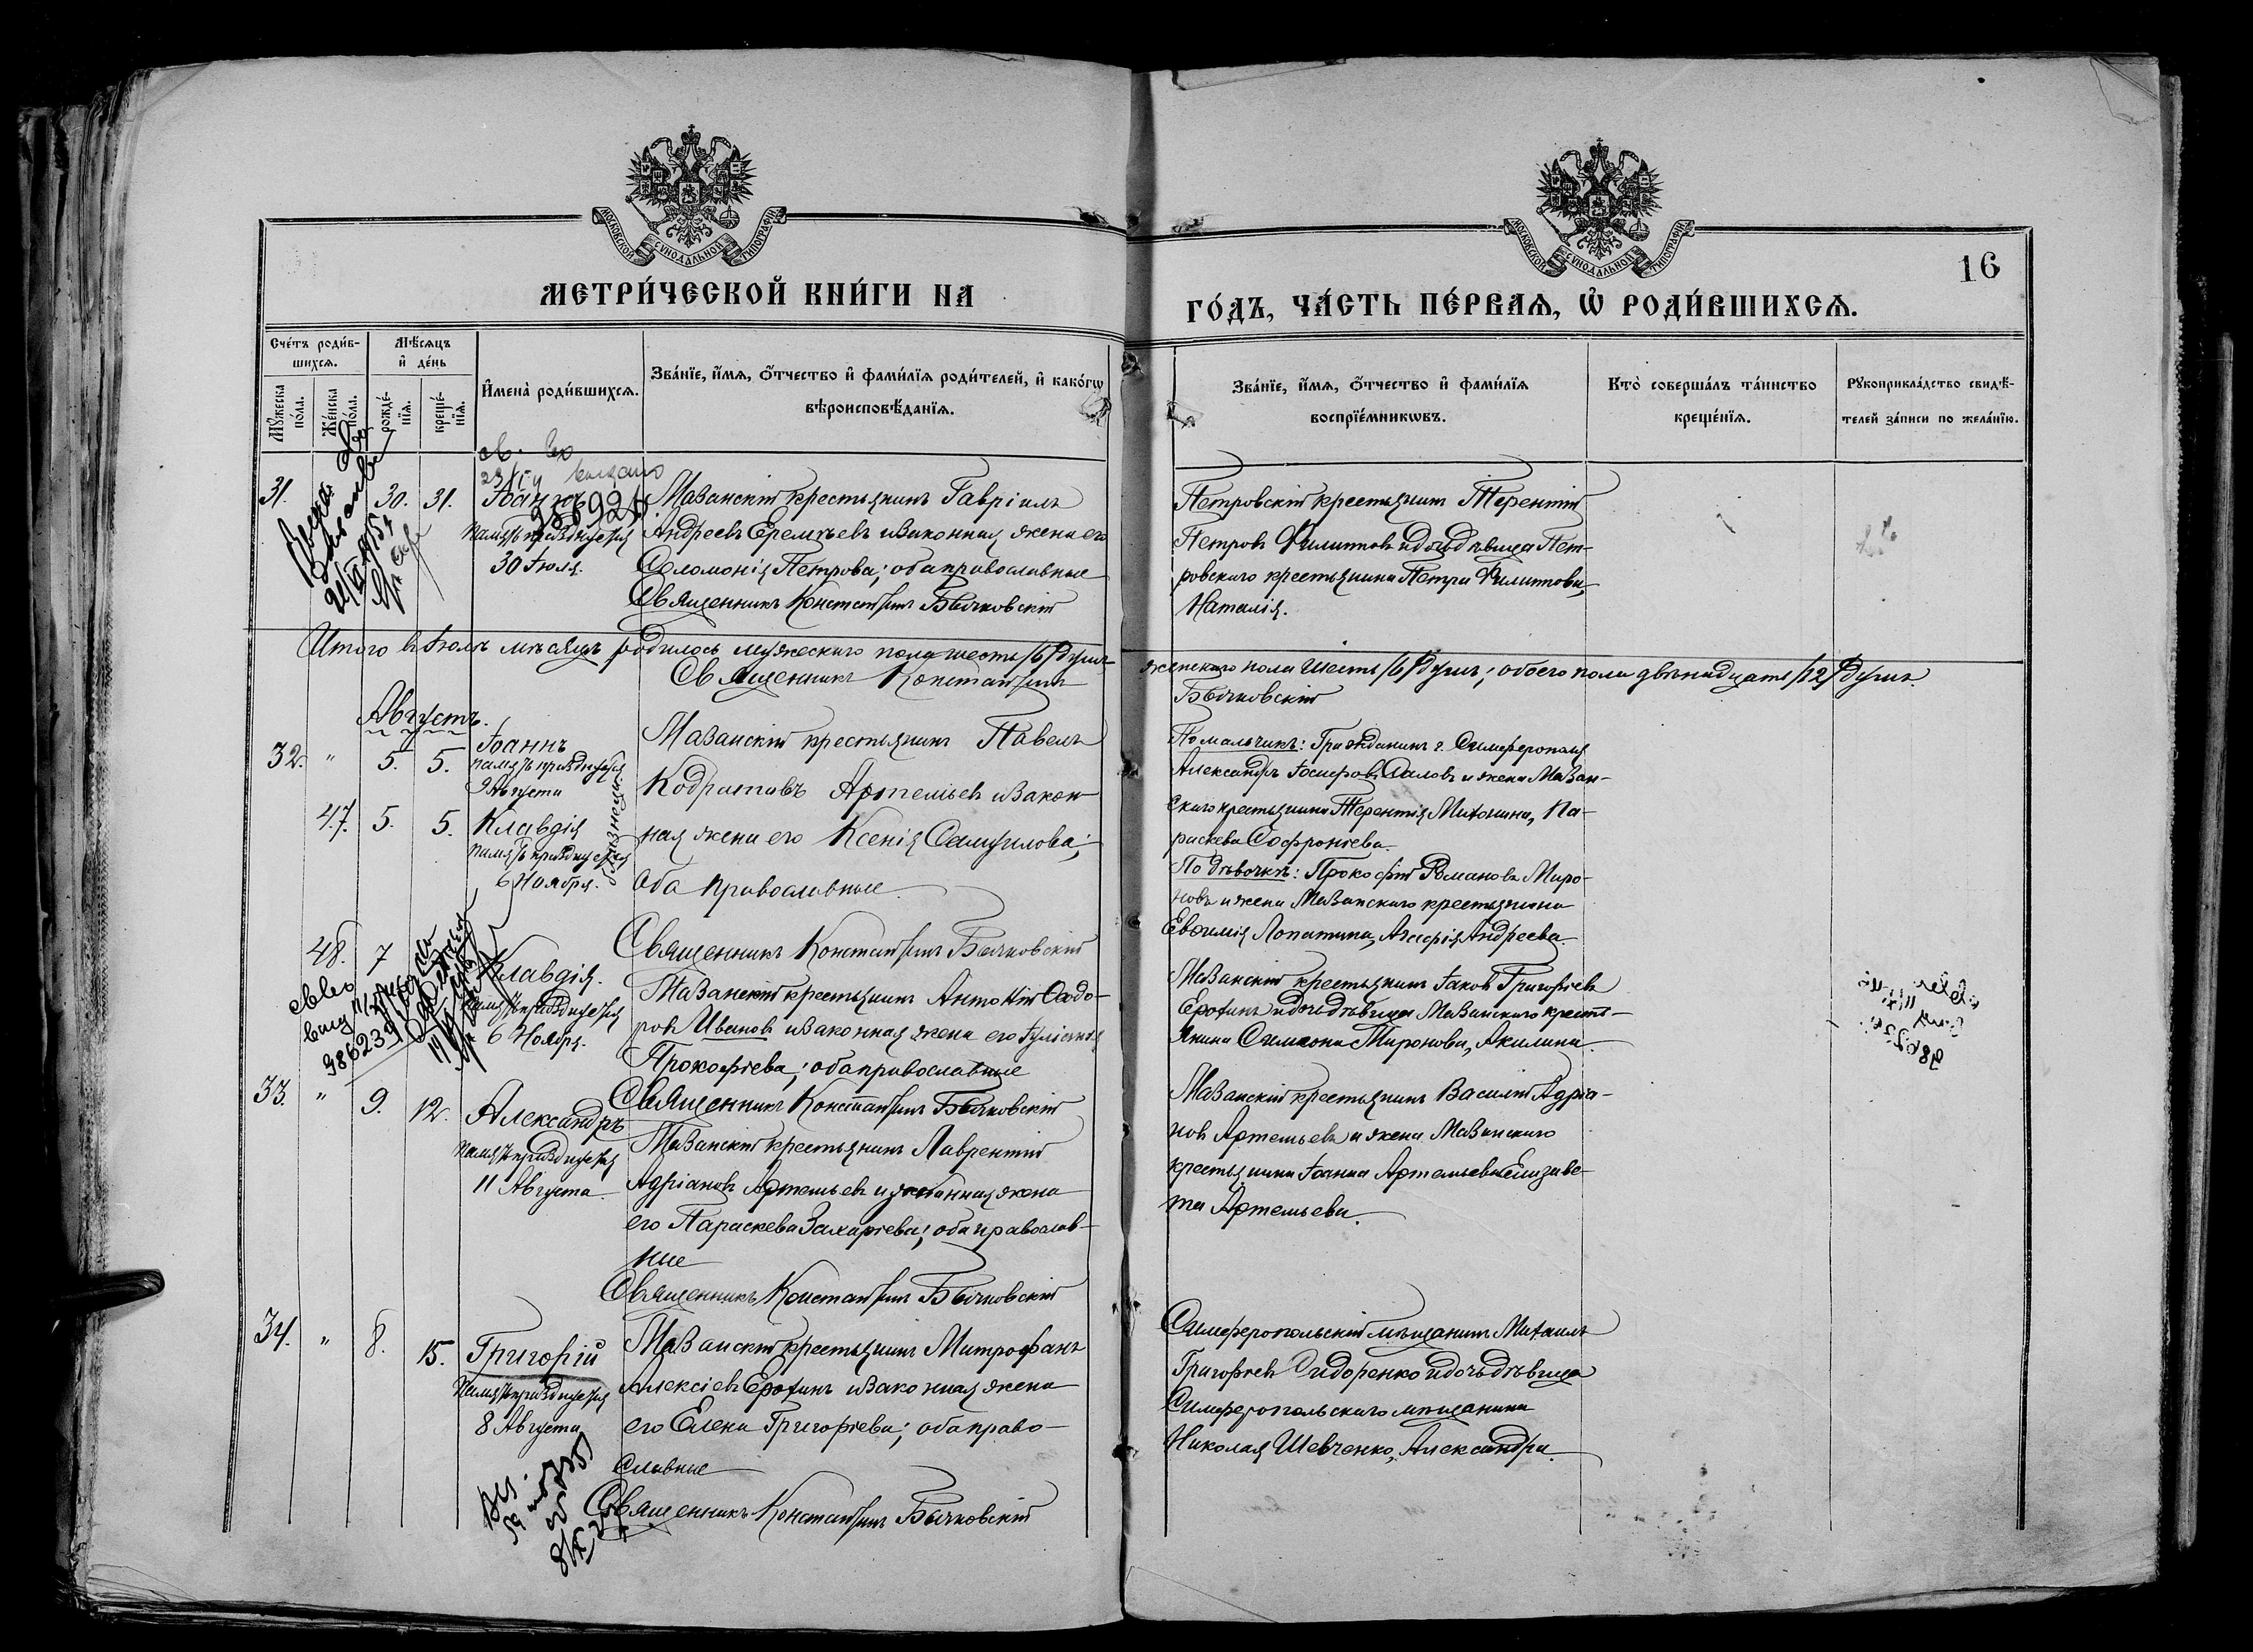 МОСКОВСКОЙ СѴНОДАЛЬНОЙ ТИПОГРАФІИ
МОСКОВСКОЙ СѴНОДАЛЬНОЙ ТИПОГРАФІИ
16
МЕТРИ́ЧЕСКОЙ КНИ́ГИ НА
ГО́ДЪ, ЧА́СТЬ ПЕ́РВАЯ, Ѡ РОДИ́ВШИХСЯ.
Сче́тъ роди́в-
шихся.
Мѣ́сяцъ
и де́нь
Му́жеска
по́ла.
Же́нска
по́ла.
рожде́-
нія.
креще́-
нія.
Имена̀ роди́вшихся.
Зва́ніе, и́мя, о́тчество и фами́лія роди́телей, и како́гѡ
вѣроисповѣ́данія.
Зва́ніе, и́мя, о́тчество и фами́лія
воспріе́мникѡвъ.
Кто̀ соверша́лъ та́инство
креще́нія.
Рꙋкоприкла́дство свидѣ́-
телей за́писи по жела́нію.
31. 30. 31. Іоаннъ
память празднуется
30 Іюля.
Мазанскій крестьянинъ Гавріилъ
Андреевъ Еремѣевъ и законная жена его
Соломонія Петрова; оба православные
Священникъ Константинъ Бычковскій
Петровскій крестьянинъ Терентій
Петровъ Филиповъ и дочь дѣвица Пет-
ровскаго крестьянина Петра Филипова,
Наталія.
Итого въ Іюлѣ мѣсяцѣ родилось мужескаго пола шесть /6/ душъ
женскаго пола шесть /6/ душъ; обоего пола двѣнадцать /12/ душъ.
Священникъ Константинъ
Бычковскій
Августъ.
32. " 5. 5. Іоаннъ
память празднуется
9 Августа
47. 5. 5. Клавдія
память празднуется
6 Ноября.
близнецы
Мазанскій крестьянинъ Павелъ
Кодратовъ Артемьевъ и закон-
ная жена его Ксенія Самуилова;
оба православные
Священникъ Константинъ Бычковскій
По мальчикѣ: Гражданинъ г. Симферополя
Александръ Іосифовъ и жена Мазан-
скаго крестьянина Терентія Митонина, Па-
раскева Софроніева.
По дѣвочкѣ: Прокофій Романовъ Миро-
новъ и жена Мазанскаго крестьянина
Евфимія Лопатина, Агафія Андреева.
48. 7 Клавдія.
память празднуется
6 Ноября.
986239
Мазанскій крестьянинъ Антоній Ѳедо-
ровъ Ивановъ и законная жена его Іуліанія
Прокофіева; оба православные
Священникъ Константинъ Бычковскій
Мазанскій крестьянинъ Іаковъ Григорьевъ
Ерохинъ и дочь дѣвица Мазанскаго кресть-
янина Симеона Миронова, Акилина.
33. " 9. 12. Александръ
память празднуется
11 Августа.
Мазанскій крестьянинъ Лаврентій
Адріановъ Артемьевъ и законная жена
его Параскева Захаріева; оба православ-
ные
Священникъ Константинъ Бычковскій
Мазанскій крестьянинъ Василій Адріа-
новъ Артемьевъ и жена Мазанскаго
крестьянина Іоанна Артемьева Елизаве-
та Артемьева.
34. " 8. 15. Григорій
память празднуется
8 Августа
Мазанскій крестьянинъ Митрофанъ
Алексіевъ Ерохинъ и законная жена
его Елена Григоріева; оба право-
славные
Священникъ Константинъ Бычковскій
Симферопольскій мѣщанинъ Михаилъ
Григорьевъ Сидоренко и дочь дѣвица
Симферопольскаго мѣщанина
Николая Шевченко, Александра.